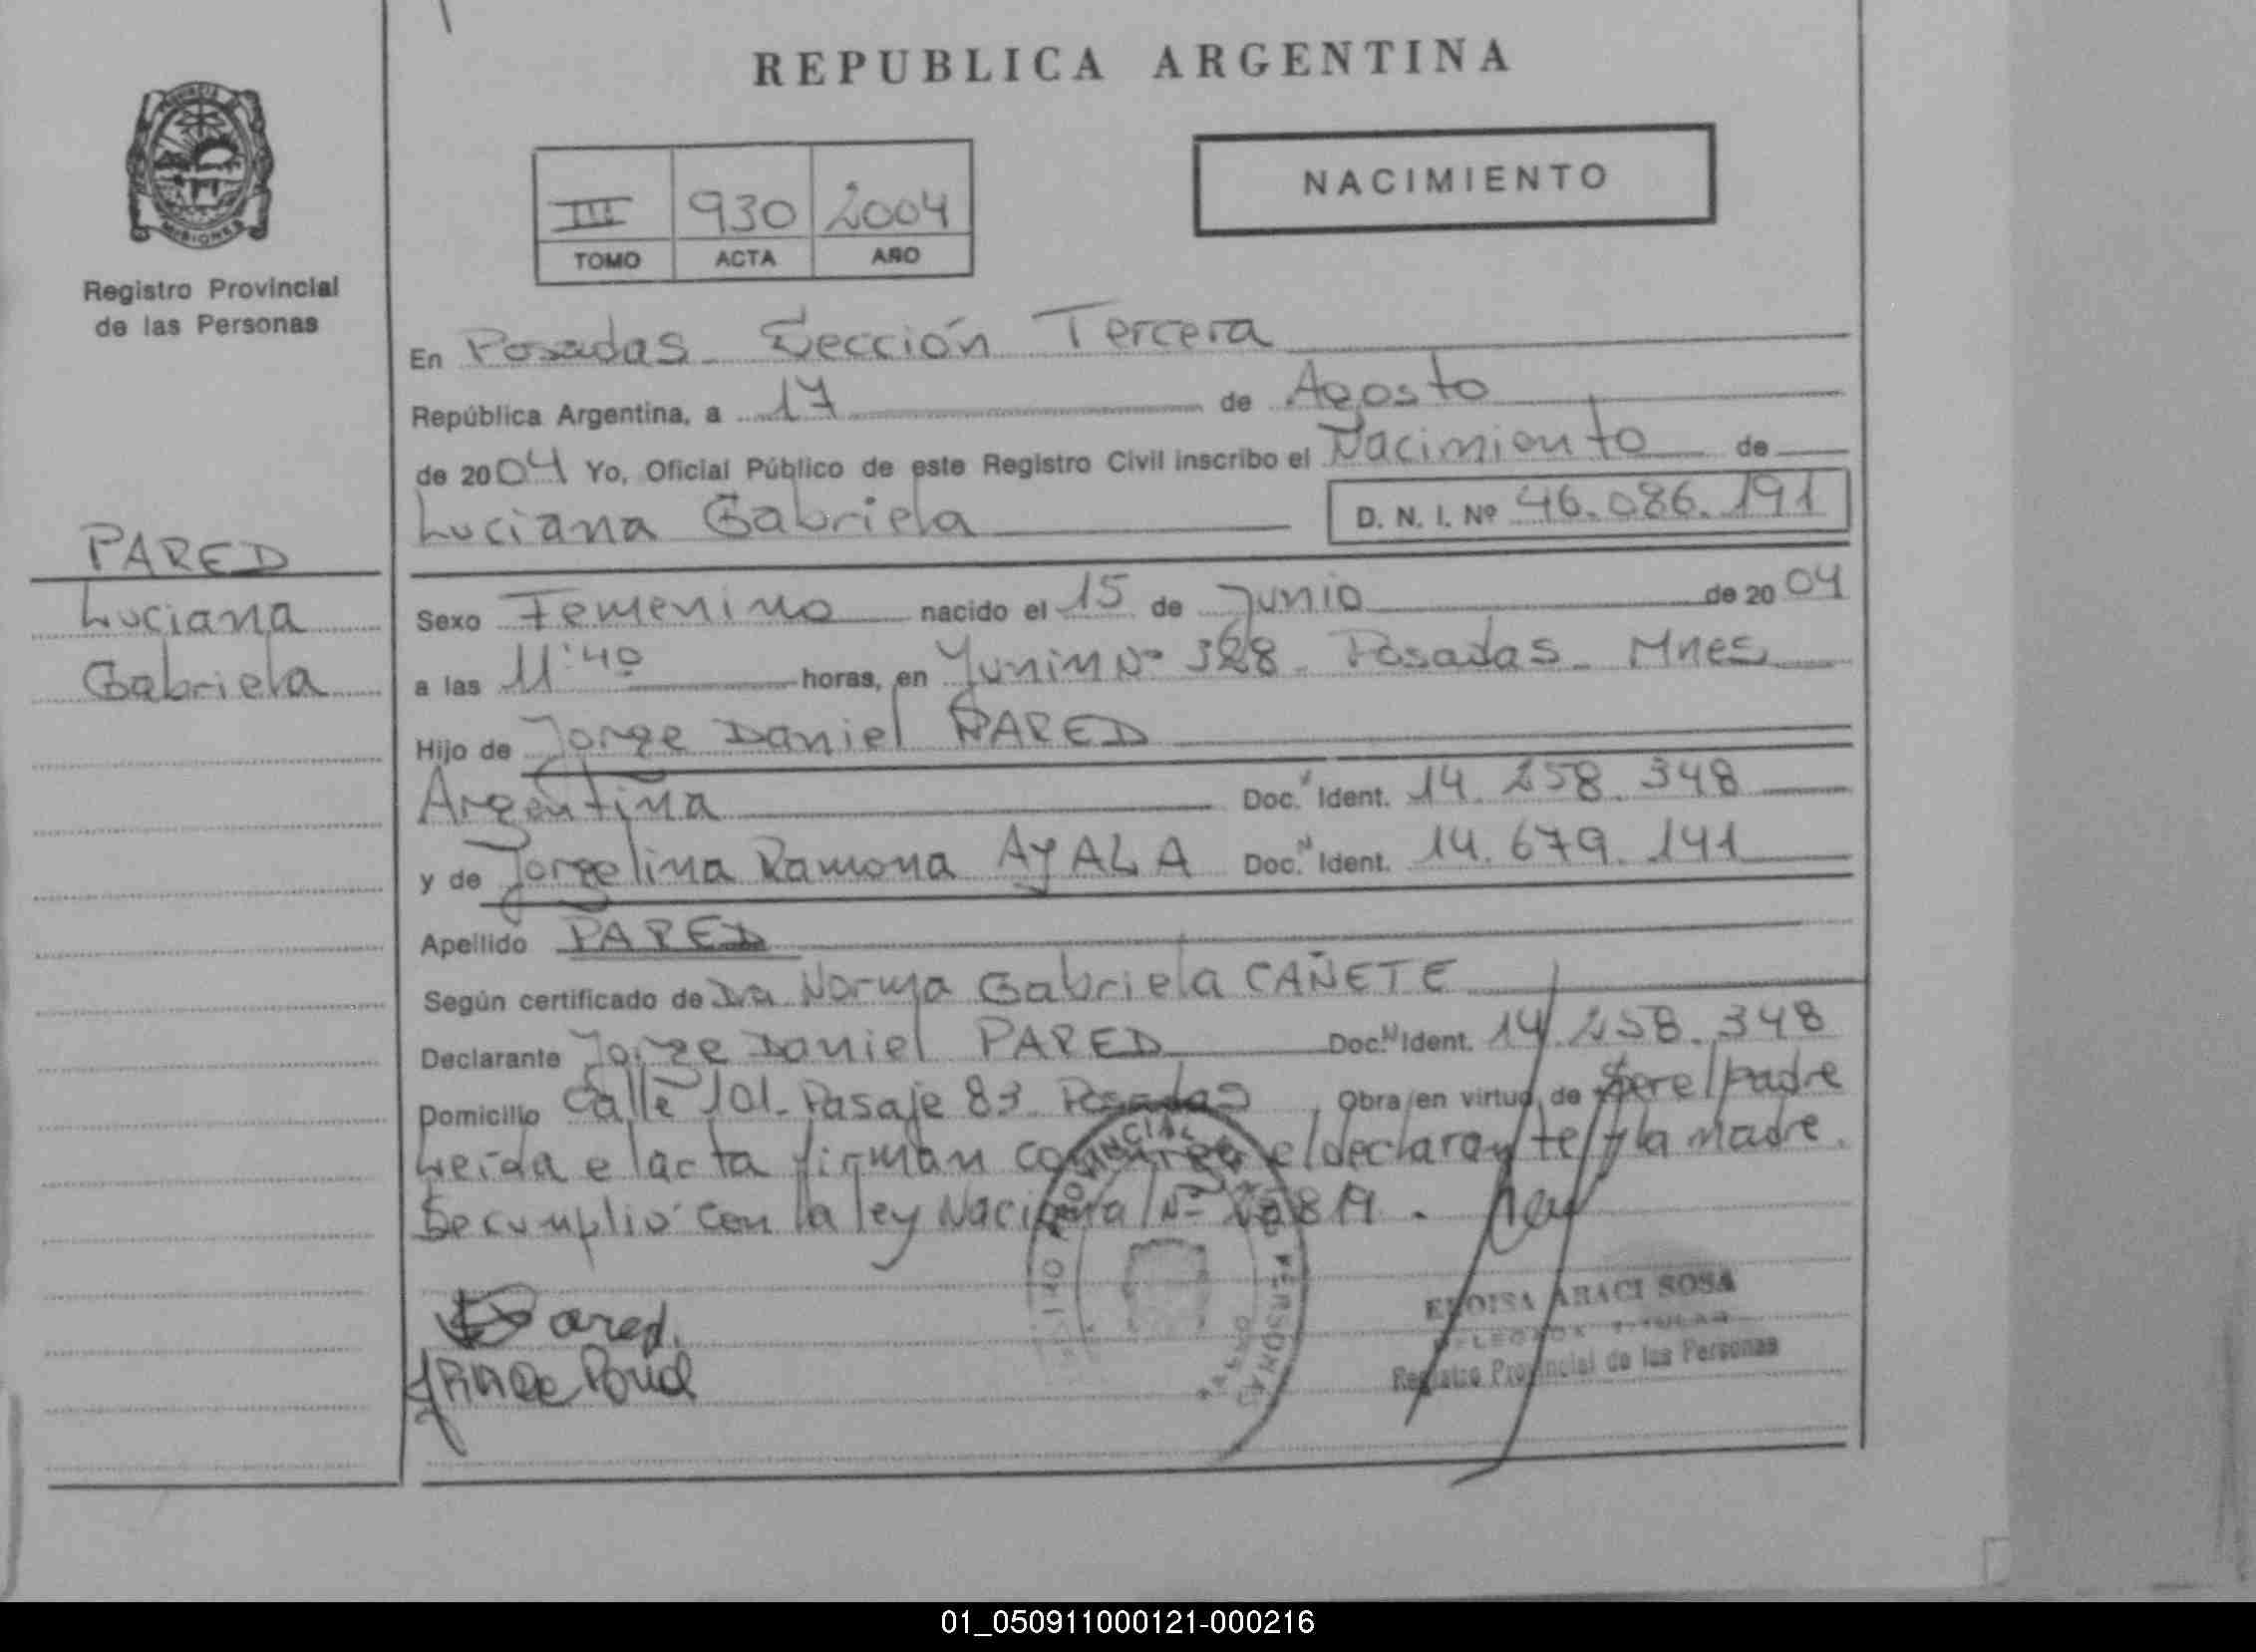 REPUBLICA ARGENTINA
PROVINCIA DE
MISIONES
Registro Provincial
de las Personas
NACIMIENTO
III 930 2004
TOMO ACTA AÑO
En Posadas - Sección Tercera
República Argentina, a 17 de Agosto
de 2004 Yo, Oficial Público de este Registro Civil inscribo el Nacimiento de
Luciana Gabriela D. N. I. Nº 46.086.191
PARED
Luciana
Gabriela
Sexo Femenino nacido el 15 de Junio de 2004
a las 11:40 horas, en Junin Nº 328 - Posadas - Mnes
Hijo de Jorge Daniel PARED
Argentina Doc. Ident. 14.258.348
y de Jorgelina Ramona AYALA Doc. Ident. 14.679.141
Apellido PARED
Según certificado de Dra Norma Gabriela CAÑETE
Declarante Jorge Daniel PARED Doc. Ident. 14.258.348
Domicilio Calle 101 - Pasaje 83 - Posadas, Obra en virtud de ser el padre
Leída el acta firman conmigo el declarante y la madre.
Se cumplió con la ley Nacional Nº
Pared.
ELOISA ARACI SOSA
DELEGADA TITULAR
Registro Provincial de las Personas
01_050911000121-000216